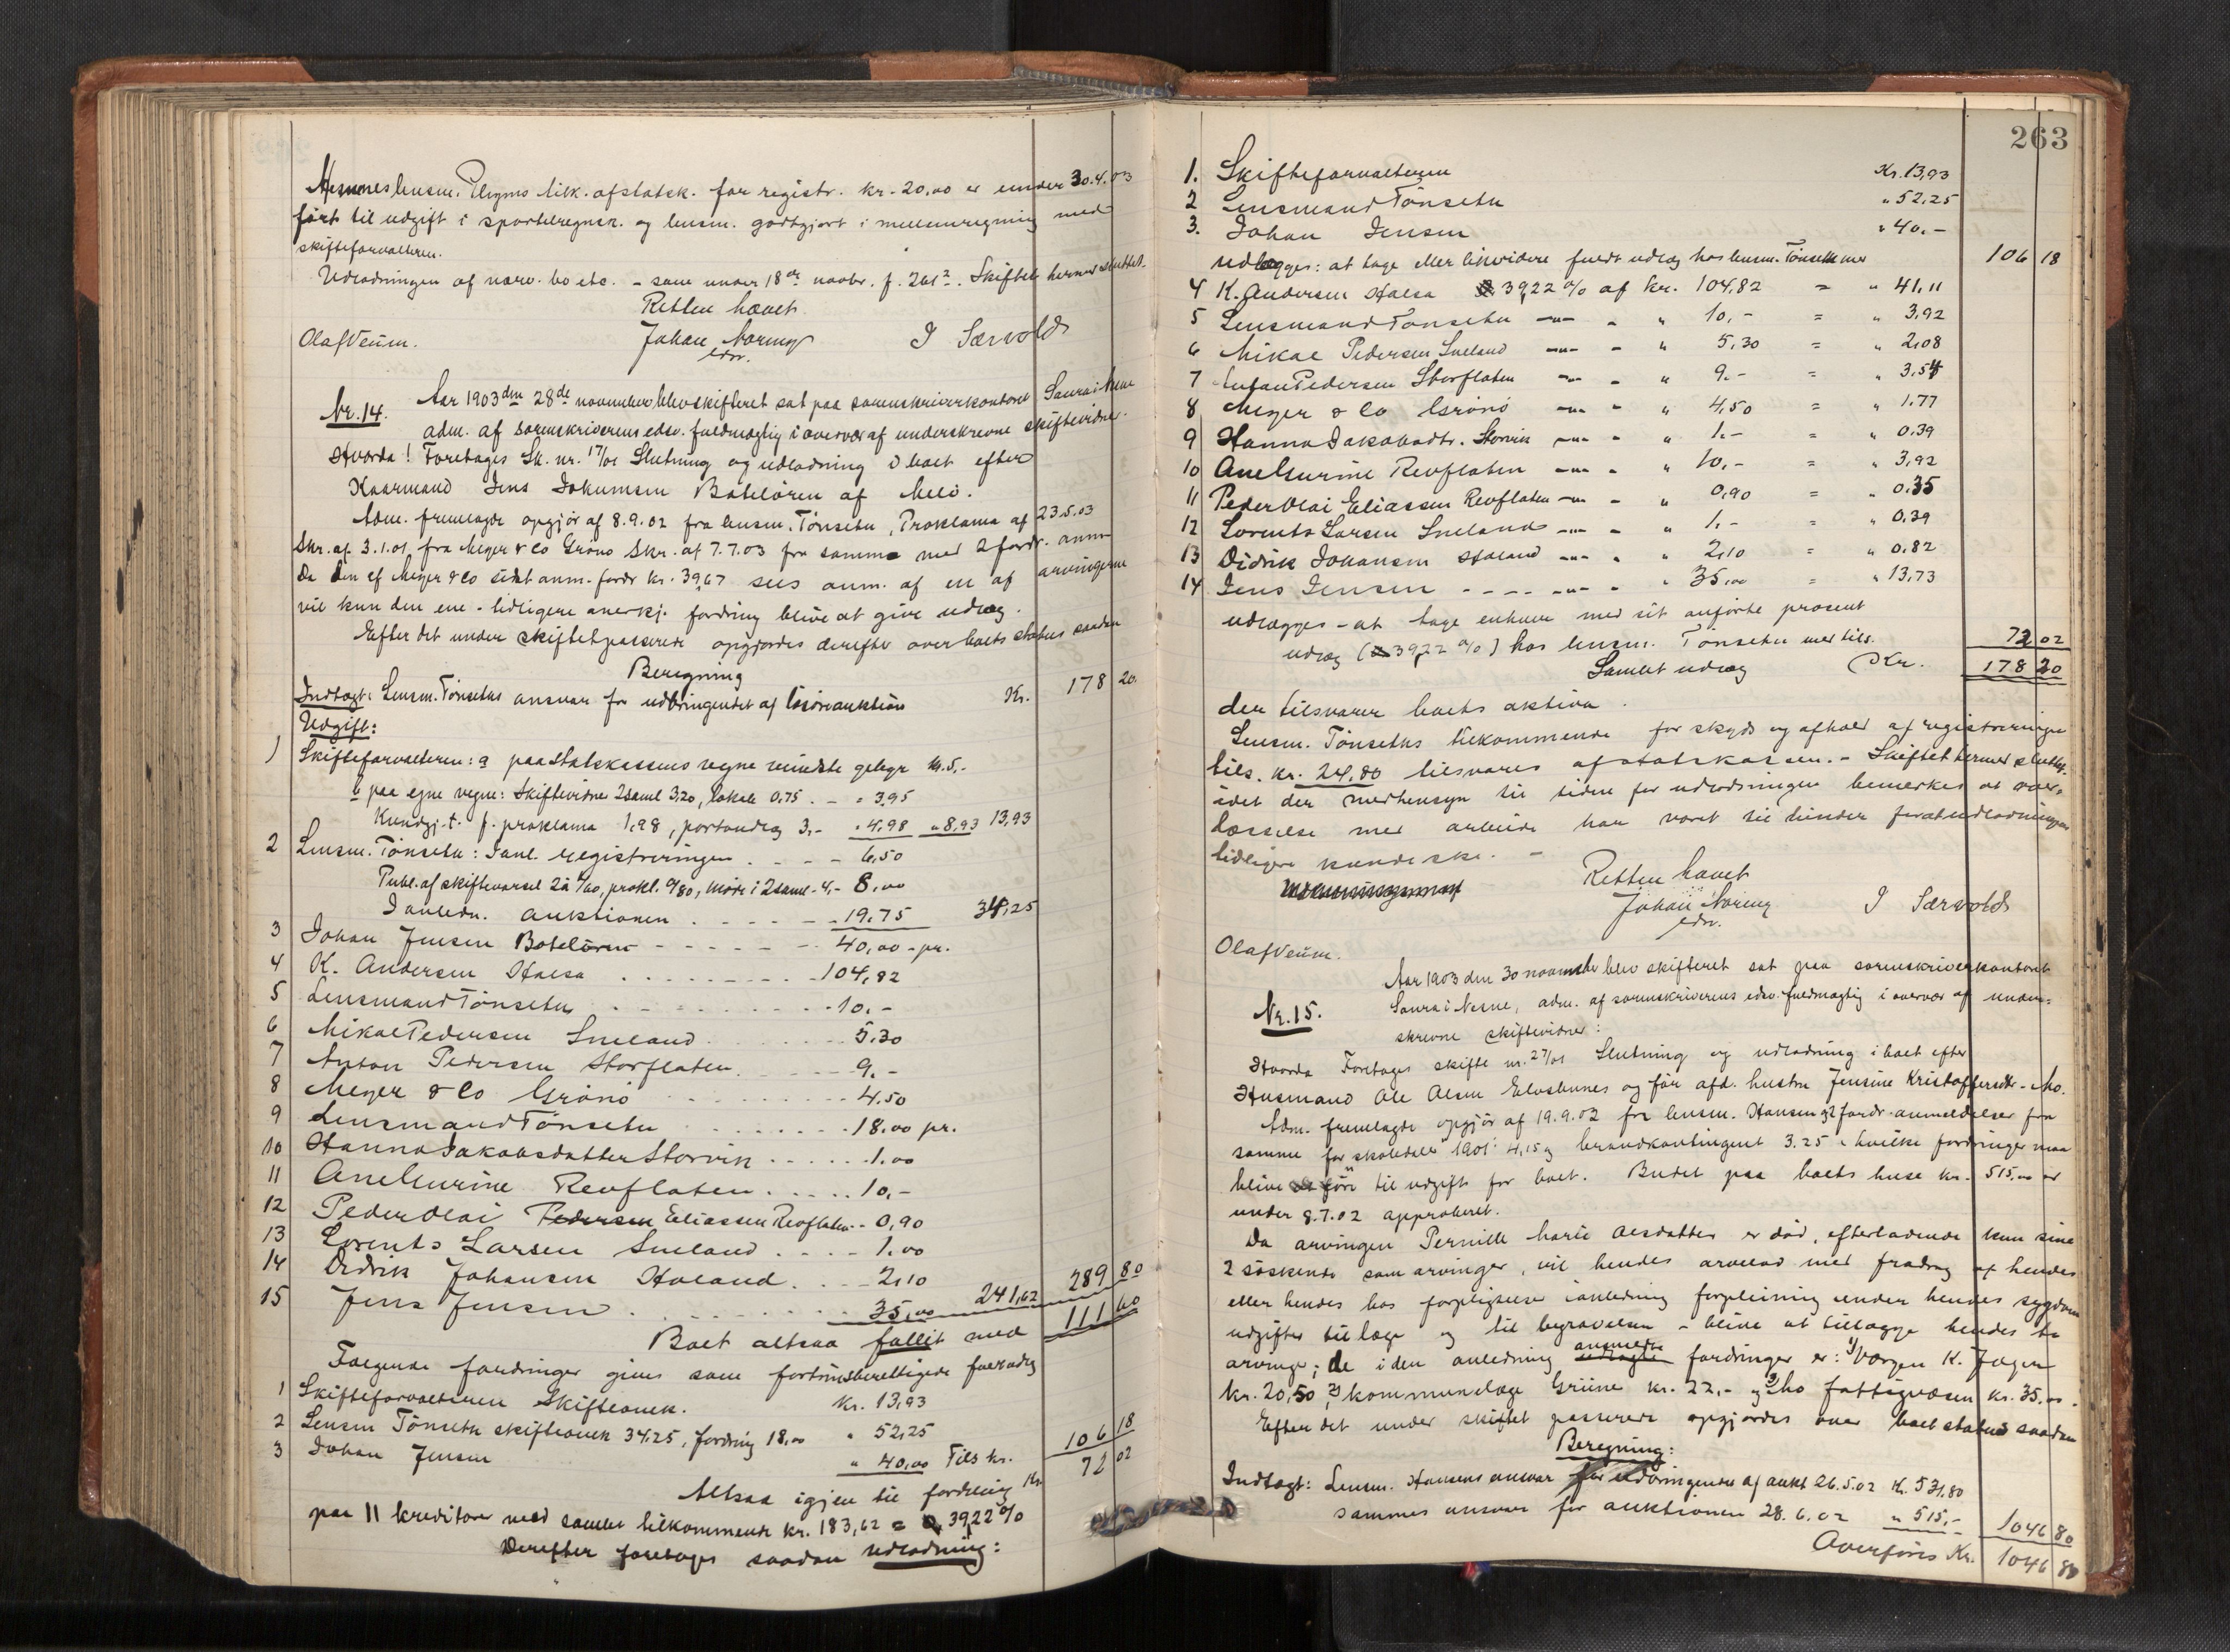 Nesneslensm. tilk. af statsk. for registr. kr. 20,00 er under 30.4.03
ført til udgift i sportelregnsk. og lensm. godtgjort i mellemregning med
skifteforvalteren.
Udlodningen af nærv. bo etc. - som under 18de novbr. f. 261 2. Skiftet hermed sluttet.
Retten hævet
Olaf Veum. Johan Noreng J Særvold
edsv.
Nr. 14. Aar 1903 den 28de november blev skifteret sat paa sorenskriverkontoret Saura i Nesne
adm. af sorenskriverens edsv. fuldmægtig i overvær af underskrevne skiftevidner.
Hvorda! Foretages Sk. nr. 17/01 Slutning og udlodning i boet efter
Kaarmand Jens Jokumsen Boteløren af Melö.
Adm. fremlagde opgjør af 8.9.02 fra lensm. Tönseth, Proklama af 23.5.03
Skr. af 3.1.01 fra Meyer & Co Grönö Skr. af 7.7.03 fra samme med 2 fordr. anm
Da den af Meyer & Co sidst anm. fordr kr. 39,67 sees anm. af en af arvingerne
vil kun den ene - tidligere anerkj. fordring blive at give udlæg.
Efter det under skiftet passerede opgjordes derefter over boets status saadan
Beregning
Indtægt: Lensm. Tönseths ansvar for udbringendet af løsöreauktion Kr. 178 20.
Udgift:
1 Skifteforvalteren: a paa Statskassens vegne mindste gebyr Kr. 5,-
b paa egne vegne: Skiftevidner 2 saml 3,20, lokale 0,75 . - " 3,95
Kundgj. t. f. proklama 1,98, portoudlæg 3,- " 4,98 " 8,93 13,93
2 Lensm. Tönseth: I anl. registreringen . - - - 6,50
Publ. af skiftevarsel 2 à /40, prokl. 0/80, møde i 2 saml - 4,- 8,00
I anledn. auktionen . - - - - 19,75 34,25
3 Johan Jensen Botelören - - - - - - 40,00 - pr.
4 K. Andersen Halsa . . . . . . . . 104,82
5 Lensmand Tönseth . . . . . . . . 10.-
6 Mikal Pedersen Sneland . . . . . . 5.30
7 Anton Pedersen Storflaten . . . . . 9.-
8 Meyer & Co Grönö . . . . . . . . 4.50
9 Lensmand Tönseth . . . . . . . 18.00 pr.
10 Hanna Jakobsdatter Storvik . . . . . . 1.00
11 Ane Gurine Revflaten . . . . . 10.-
12 Peder Olai Pedersen Eliassen Revflaten . . 0,90
13 Lorents Larsen Sneland . . . . 1.00
14 Didrik Johansen Haland . . . 2,10
15 Jens Jensen . . . . . . . . 35,00 241,62 289 80
Boet altsaa fallit med 111 60
Følgende fordringer gives som fortrinsberettigede fuldt udlæg
1 Skifteforvalteren Skifteomk. kr. 13,93
2 Lensm Tönseth skifteomk 34.25, fordring 18,00 " 52,25
3 Johan Jensen " 40,00 Tils kr. 106 18
Altsaa igjen til fordeling Kr 72 02
paa 11 kreditorer med samlet tilkommende kr. 183,62 = 39,22 %
Derefter foretages saadan udlodning:
263
1. Skifteforvalteren Kr. 13,93
2 Lensmand Tönseth " 52,25
3. Johan Jensen " 40.-
udlægges: at tage eller likvidere fuldt udlæg hos lensm. Tönseth med 106 18
4 K. Andersen Halsa 39,22 % af kr. 104,82 = " 41,11
5 Lensmand Tönseth -"- - " 10.- = " 3,92
6 Mikal Pedersen Sneland -"- - " 5,30 = " 2,08
7 Anton Pedersen Storflaten -"- - " 9.- = " 3,54
8 Meyer & Co Grönö -"- - " 4,50 = " 1.77
9 Hanna Jakobsdtr. Storvik -"- - " 1.- = " 0.39
10 Ane Gurine Revflaten -"- - " 10,- = " 3,92
11 Peder Olai Eliassen Revflaten -"- - " 0,90 = " 0.35
12 Lorents Larsen Sneland -"- - " 1.- = " 0,39
13 Didrik Johansen Haland -"- - " 2,10 = " 0,82
14 Jens Jensen - - - - -"- - " 35,00 = " 13,73
udlægges - at tage enhver med sit anførte procent
udlæg (39,22 %) hos lensm. Tönseth med tils. 72 02
Samlet udlæg Kr. 178 20
der tilsvarer boets aktiva.
Lensm. Tönseths tilkommende for skyds og afhold af registreringen
tils. kr. 24,80 tilsvares af statskassen. - Skiftet hermed sluttet.
idet der medhensyn til tiden for udlodningen bemerkes at over-
læsselse med arbeide har været til hinder for at udlodningen
tidligere kunde ske. -
Retten hævet
Johan Noreng J Særvold
edsv.
Olaf Veum.
Aar 1903 den 30 november blev skifteret sat paa sorenskriverkontoret
Nr. 15. Saura i Nesne, adm. af sorenskriverens edsv. fuldmægtig i overvær af under-
skrevne skiftevidner:
Hvorda Foretages skifte nr. 27/01 Slutning og udlodning i boet efter
Husmand Ole Olsen og før afd. hustru Jensine Kristoffersdtr. - Mo.
Adm. fremlagde opgjør af 19.9.02 fra lensm. Hansen og 2 fordr. anmeldelser fra
samme for skoledele 1901: 4,15 og brandkontingent 3.25 - hvilke fordringer maa
blive at føre til udgift for boet. Budet paa boets huse kr. 515,00 er
under 8.7.02 approberet.
Da arvingen Pernille Marie Olsdatter er død, efterladende kun sine
2 söskende som arvinger, vil hendes arvelod med fradrag af hendes
eller hendes bos forpligtelser i anledning forpleining under hendes sygdom
udgifter til læge og til begravelsen - blive at tillægge hendes to
arvinge; de i den anledning anmeldte fordringer er: 1) Værgen K. Jagen
kr. 20,50, 2) kommunelæge Grüne kr. 22,- og 3) Mo fattigvæsen kr. 35,00.
Efter det under skiftet passerede opgjordes over boet status saadan
Beregning:
Indtægt: Lensm. Hansens ansvar for udbringendet af aukt 26.5.02 Kr. 531,80
sammes ansvar for auktionen 28.6.02 " 515,- 1046 80
Overføres Kr. 1046 80